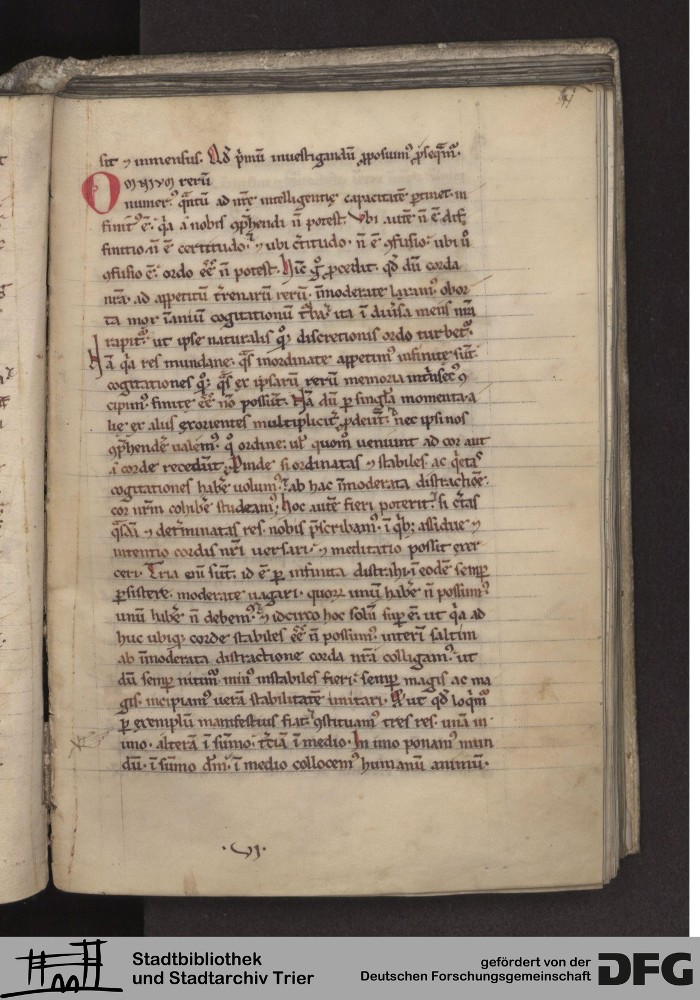 sit ⁊ inmensus. Ad p̄mū inuestigandū ꝓposuimꝰ p̄seq̄mꝰ.
OMNIVM rerū
numerꝰ q̄ntū ad nr̄e intelligentię capacitatē ꝑtinet in
finitꝰ ē. q̄a a nobis ꝯp̄hendi ń potest. Vbi autē ń ē dif
finitio ń ē certitudo. ⁊ ubi c̄titudo ń ē ꝯfusio. ubi ū
ꝯfusio ē. ordo ēē ń potest. Hinc g̊ ꝓcedit. qd̄ dū corda
nr̄a. ad appetitū t̄renarū rerū. īmoderate laxamꝰ. obor
ta mox inaniū cogitationū t̄ba. ita ī diūsa mens nr̄a
rapit᷑. ut ipse naturalis quoq; discretionis ordo turbet᷑.
Nā q̄a res mundane. q̄s inordinate appetimꝰ infinite sūt.
cogitationes quoq; q̄s ex ipsarū rerū memoria int̄nsecꝰ ꝯ
cipimꝰ. finite ēē non possūt. Nā dū ꝑ singl̄a momenta a
lie ex aliis exorientes multiplicit᷑ ꝓdeūt. nec ipsi nos
ꝯp̄hendē ualemꝰ. quo ordine. ul̄ quom̊ ueniunt ad cor aut
a corde recedūt. Proinde si ordinatas ⁊ stabiles ac q̄etas
cogitationes habē uolumꝰ. ab hac īmoderata distractiōe.
cor nr̄m cohibē studeamꝰ. Hoc autē fieri poterit. si c̄tas
q̄sdā ⁊ det̄minatas res. nobis p̄scribamꝰ. ī q̄bꝰ assidue ⁊
intentio cordis nr̄i uersari. ⁊ meditatio possit exer
ceri. Tria enī sūt. id ē ꝑ infinita distrahi. ī eodē semꝑ
ꝑsistere. moderate uagari. quoꝝ unū habē ń possumꝰ.
unū habē ń debemꝰ. ⁊ idcirco hoc solū suꝑ ē. ut q̄a ad
huc ubiq; corde stabiles ēē ń possumꝰ. interī saltim
ab īmoderata distractione corda nr̄a colligamꝰ. ut
dū semꝑ nitimꝰ minꝰ instabiles fieri. semꝑ magis ac ma
gis. incipiamꝰ uerā stabilitatē imitari. Et ut qd̄ loq̄mꝰ
ꝑ exemplū manifestius fiat. ꝯstituamꝰ tres res. unā in
imo. alterā ī sūmo. t̄ciā ī medio. In imo ponamꝰ mun
dū. ī sūmo dm̄. ī medio collocemꝰ humanū animū.
.VI.
Stadtbibliothek
und Stadtarchiv Trier
gefördert von der
Deutschen Forschungsgemeinschaft
DFG